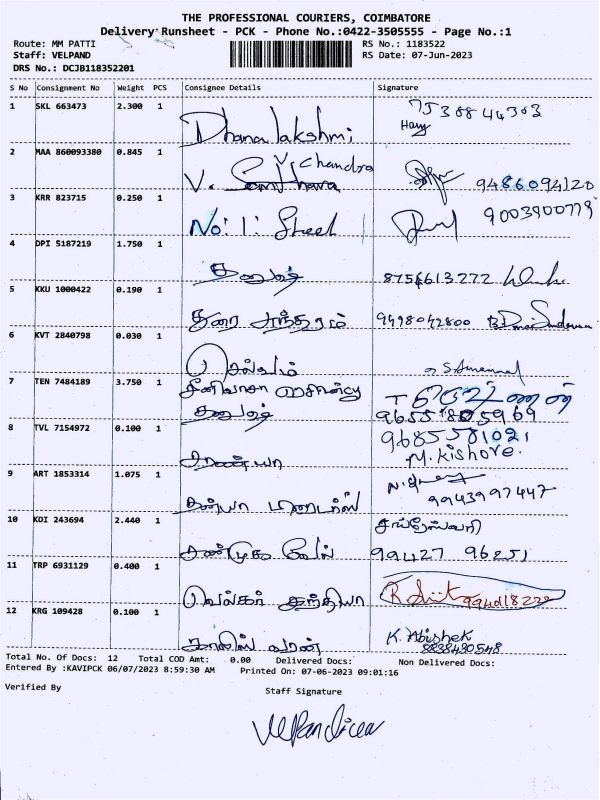 THE PROFESSIONAL COURIERS, COIMBATORE
Delivery Runsheet - PCK - Phone No.:0422-3505555 - Page No.:1
Route: MM PATTI RS No.: 1183522
Staff: VELPAND RS Date: 07-Jun-2023
DRS No.: DCJB118352201
S No Consignment No Weight PCS Consignee Details Signature
1 SKL 663473 2.300 1 Dhanalakshmi
Hary
2 MAA 860093380 0.845 1 V. Chandra
V. 9486094120
3 KRR 823715 0.250 1 No: 1: Street 9003900779
4 DPI 5187219 1.750 1 தனுஷ்
5 KKU 1000422 0.190 1 துரை சுந்தரம் 9498042800
6 KVT 2840798 0.030 1 செல்வம்
7 TEN 7484189 3.750 1 சீனிவாசா
தனுஷ் 9655805969
8 TVL 7154972 0.100 1 சரண்யா 9685581021
M. Kishore.
9 ART 1853314 1.075 1 கன்யா மாடர்ஸ் 9943997447
10 KDI 243694 2.440 1 சண்முக வேல் 99427 96251
11 TRP 6931129 0.400 1 Rohit
12 KRG 109428 0.100 1 K. Abishek
8838480548
Total No. Of Docs: 12 Total COD Amt: 0.00 Delivered Docs: Non Delivered Docs:
Entered By :KAVIPCK 06/07/2023 8:59:30 AM Printed On: 07-06-2023 09:01:16
Verified By Staff Signature